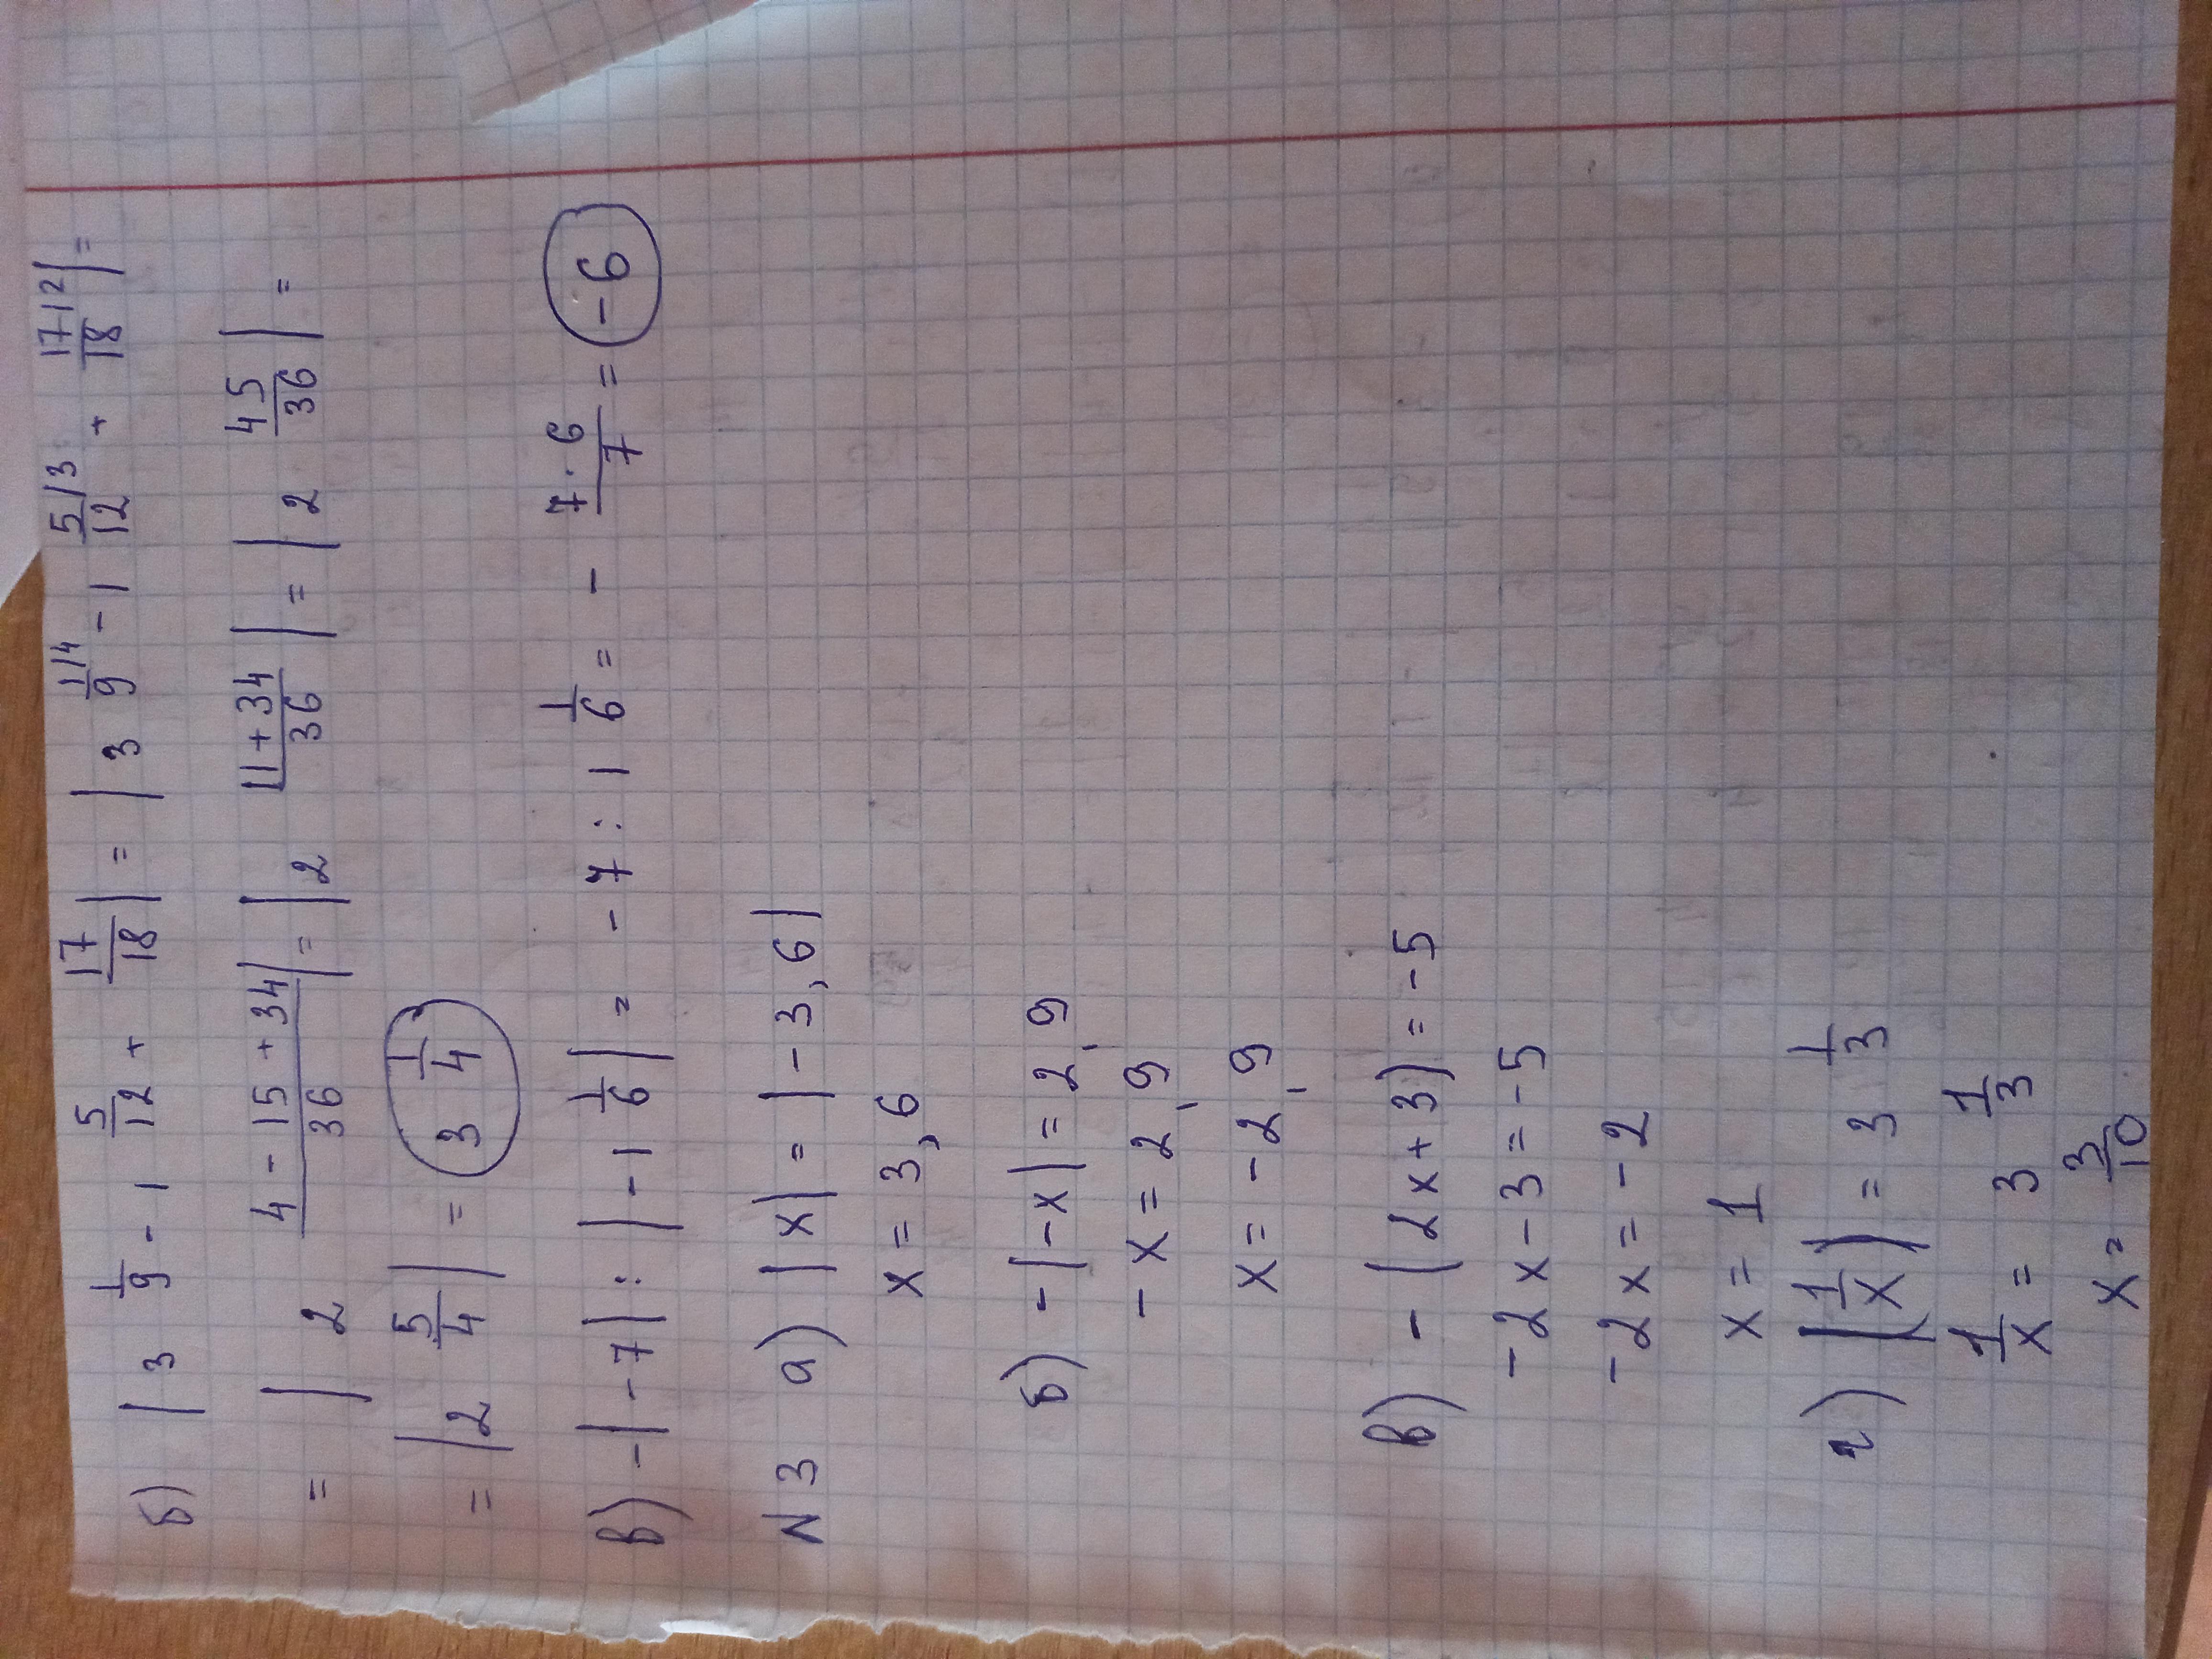 б) |3 1/9 - 1 5/12 + 17/18| = |3 1/9 |4 - 1 5/12 |3 + 17/18 |2| =
= |2 (4 - 15 + 34)/36| = |2 (-11 + 34)/36| = |2 45/36| =
= |2 5/4| = 3 1/4
в) -|-7| : |-1 1/6| = -7 : 1 1/6 = - (7 · 6)/7 = -6
N 3 а) |x| = |-3,6|
x = 3,6
б) -|-x| = 2,9
-x = 2,9
x = -2,9
в) -(2x + 3) = -5
-2x - 3 = -5
-2x = -2
x = 1
г) |1/x| = 3 1/3
1/x = 3 1/3
x = 3/10